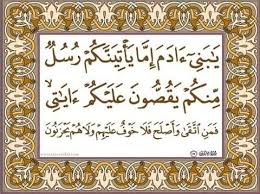 يَٰبَنِىٓ ءَادَمَ إِمَّا يَأْتِيَنَّكُمْ رُسُلٌ
مِّنكُمْ يَقُصُّونَ عَلَيْكُمْ ءَايَٰتِى
فَمَنِ ٱتَّقَىٰ وَأَصْلَحَ فَلَا خَوْفٌ عَلَيْهِمْ وَلَا هُمْ يَحْزَنُونَ